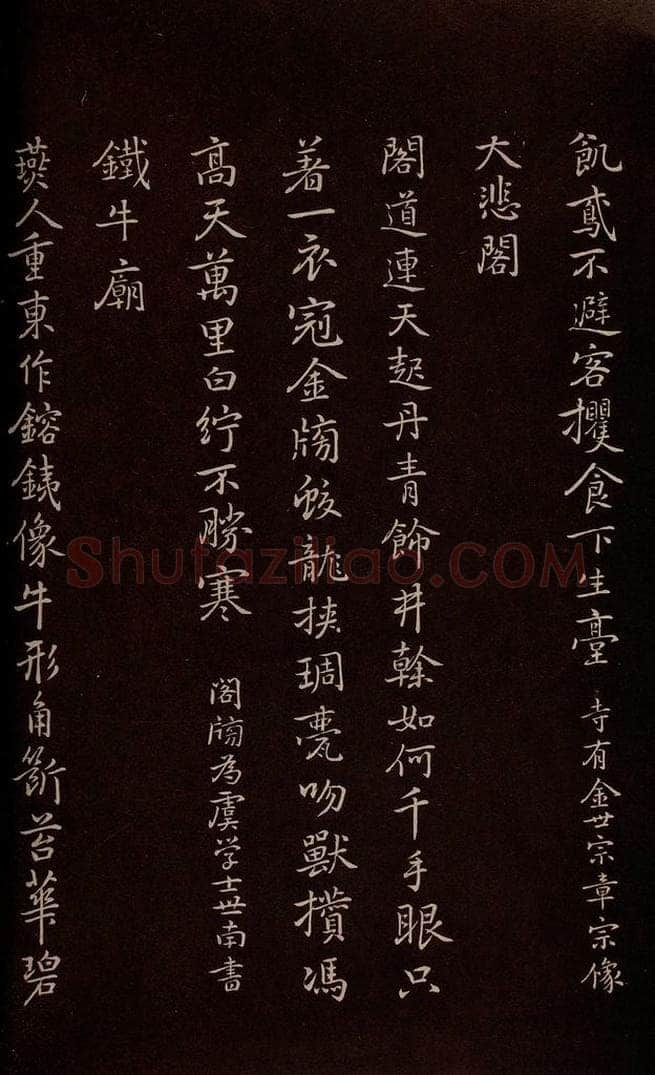 飢鳶不避客攫食下生臺 寺有金世宗章宗像
大悲閣
閣道連天起丹青飾井榦如何千手眼只
著一衣冠金牓蛟龍挟琱甍吻獸攢馮
高天萬里白紵不勝寒 閣牓為虞学士世南書
鐵牛廟
燕人重東作鎔銕像牛形角斷苔華碧
Shufaziliao.COM